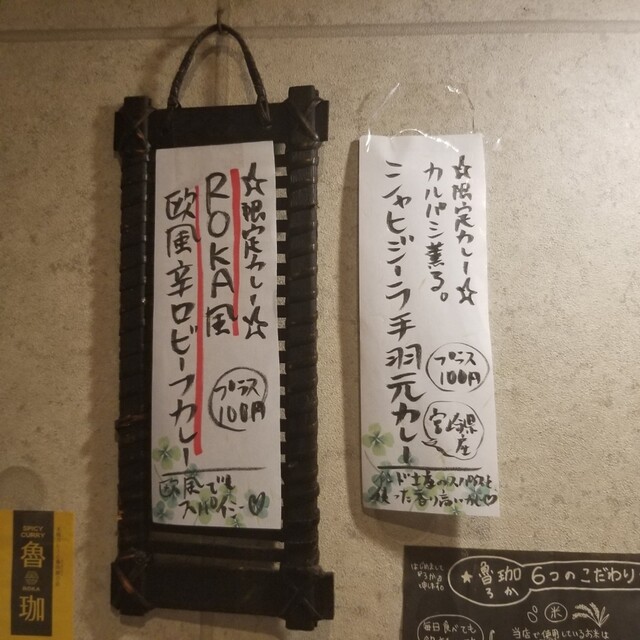 ☆限定カレー☆
ROKA風
欧風辛口ビーフカレー
プラス
100円
欧風でも
スパイシー♡
☆限定カレー☆
カルパシ薫る。
シャヒジーラ手羽元カレー
プラス
100円
宮崎県
産
った香り高いカレー♡
SPICY
CURRY
魯
ROKA
珈
はじめまして
★魯珈 6つのこだわり
ろか
米
当店で使用しているお米は
毎日食べても